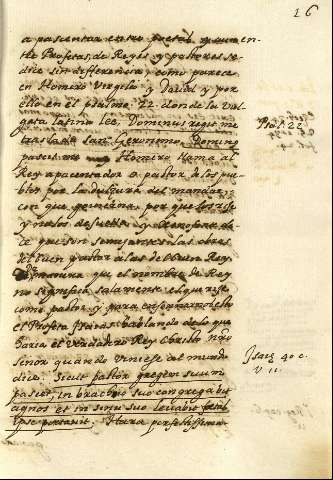 16
a pasentar entre
the Profetas, de Reyes y pastores se
dice sin differencia y como parece
en Homero Virgilio y David y por
ello en el psalmo 22. donde su Vul
gata latina lee, Dominus regit me
Psal. 22.
traslada san Geronimo. Dominus
pascit me Homero llama al
Rey apacentador o pastor de los pue
blos por la dulçura del mandar
con que govierna por que los rige
y no los desuella y Xenofonte di
ce que son semejantes las obras
del buen pastor a las del buen Rey
De manera que el nombre de Rey
no significa solamente el que rige
como pastor, y para enseñarnoslo
el Profeta Isaias hablando de lo que
haria el verdadero Rey Christo nro
señor quando viniese al mundo
dice: Sicut pastor gregem suum
Isaie 40 c.
V 11
pascet, in brachio suo congregabit
agnos et in sinu suo levabit fetas
ipse portavit. Hara perfectissima